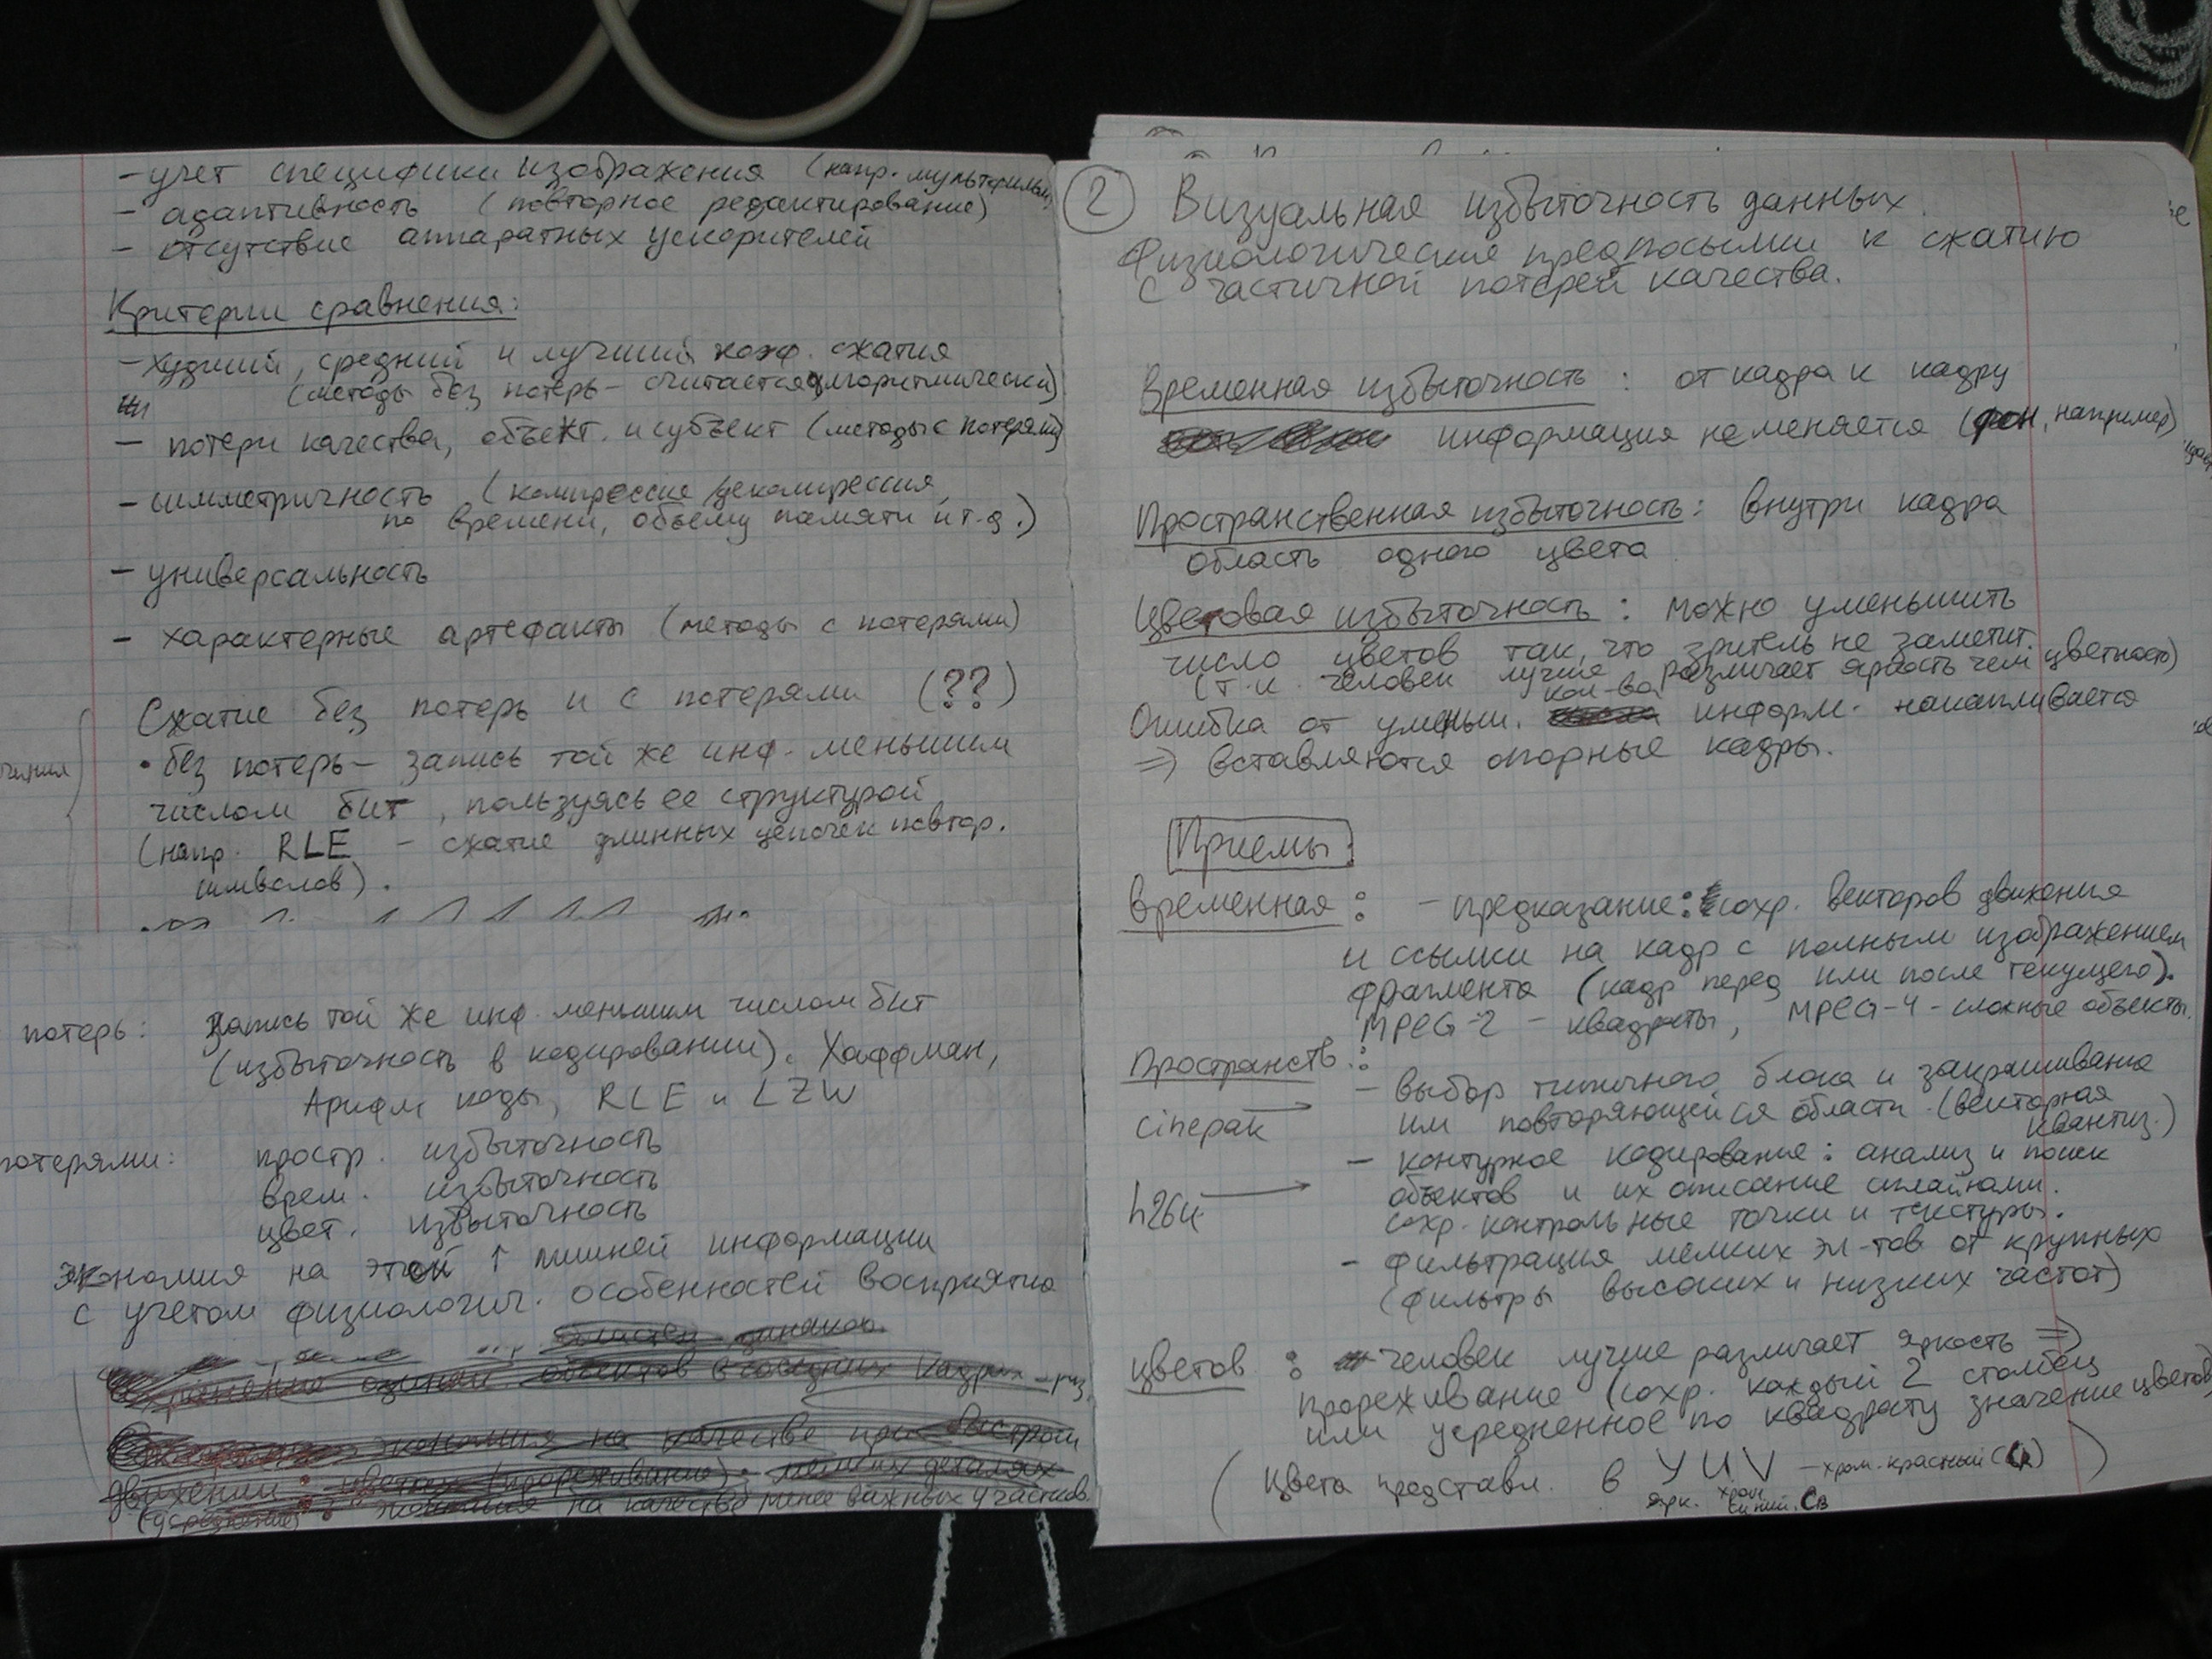 - учет специфики изображения (напр. мультфильм)
- адаптивность (повторное редактирование)
- отсутствие аппаратных ускорителей
Критерии сравнения:
- худший, средний и лучший коэф. сжатия
(методы без потерь - считается алгоритмически)
- потери качества, объект. и субъект (методы с потерями)
- симметричность (компрессия/декомпрессия,
по времени, объему памяти и т.д.)
- универсальность
- характерные артефакты (методы с потерями)
Сжатие без потерь и с потерями (??)
• без потерь - запись той же инф. меньшим
числом бит, пользуясь ее структурой
(напр. RLE - сжатие длинных цепочек повтор.
символов).
потерь: Запись той же инф. меньшим числом бит
(избыточность в кодировании). Хаффман,
Арифм коды, RLE и LZW
потерями: простр. избыточность
врем. избыточность
цвет. избыточность
Экономия на этой ↑ лишней информации
с учетом физиологич. особенностей восприятия
объектов в соседних кадрах
экономия на качестве при быстром
движении: цветах (прореживание); мелких деталях
(усреднение); экономия на качестве менее важных участков.
2 Визуальная избыточность данных.
Физиологические предпосылки к сжатию
с частичной потерей качества.
Временная избыточность: от кадра к кадру
информация не меняется (фон, например)
Пространственная избыточность: внутри кадра
область одного цвета
Цветовая избыточность: можно уменьшить
число цветов так, что зритель не заметит.
(т.к. человек лучше различает яркость чем цветность)
Ошибка от уменьш. кол-ва информ. накапливается
=> вставляются опорные кадры.
Приемы
временная: - предказание: сохр. векторов движения
и ссылки на кадр с полным изображением
фрагмента (кадр перед или после текущего).
MPEG-2 - квадраты, MPEG-4 - сложные объекты.
Пространств.:
- выбор типичного блока и закрашивание
cinepak → им повторяющейся области. (векторная
квантиз.)
- контурное кодирование: анализ и поиск
h264 → объектов и их описание сплайнами.
сохр. контрольные точки и текстуры.
- фильтрация мелких эл-тов от крупных
(фильтры высоких и низких частот)
цветов: человек лучше различает яркость =>
прореживание (сохр. каждый 2 столбец
или усредненное по квадрату значение цветов)
(Цвета представл. в YUV - хром. красный (Cr))
ярк. хром. синий. Cb